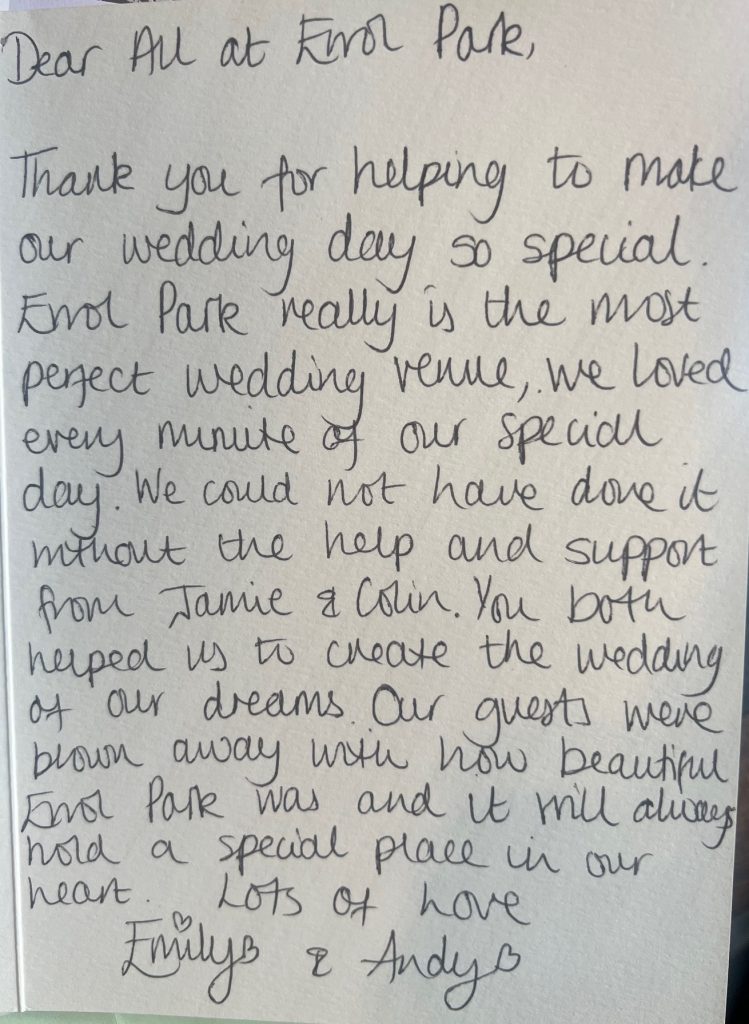 Dear All at Errol Park,
Thank you for helping to make
our wedding day so special.
Errol Park really is the most
perfect wedding venue, we loved
every minute of our special
day. We could not have done it
without the help and support
from Jamie & Colin. You both
helped us to create the wedding
of our dreams. Our guests were
blown away with how beautiful
Errol Park was and it will always
hold a special place in our
heart. Lots of Love
Emily & Andy